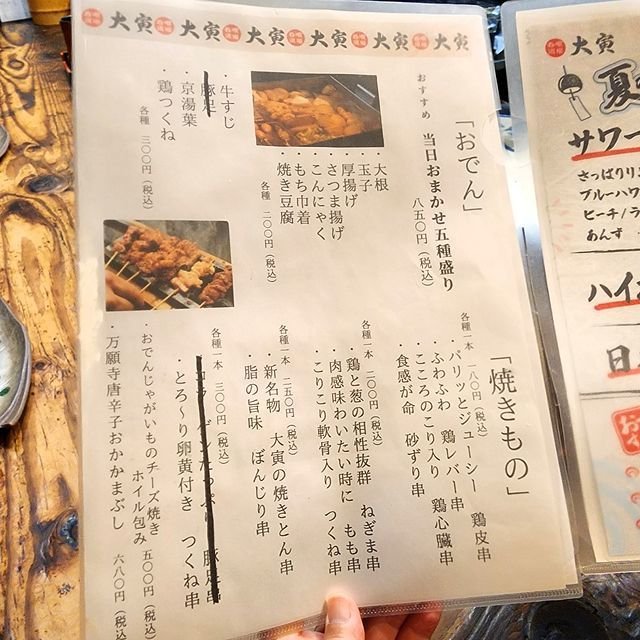 大寅 大寅 大寅 大寅 大寅
「おでん」
おすすめ 当日おまかせ五種盛り
八五〇円(税込)
・大根
・玉子
・厚揚げ
・さつま揚げ
・こんにゃく
・もち巾着
・焼き豆腐
各種 二〇〇円(税込)
・牛すじ
・豚足
・京湯葉
・鶏つくね
各種 三〇〇円(税込)
「焼きもの」
各種一本 一八〇円(税込)
・パリッとジューシー 鶏皮串
・ふわふわ 鶏レバー串
・こころのこり入り 鶏心臓串
・食感が命 砂ずり串
各種一本 二〇〇円(税込)
・鶏と葱の相性抜群 ねぎま串
・肉感味わいたい時に もも串
・こりこり軟骨入り つくね串
各種一本 二五〇円(税込)
・新名物 大寅の焼きとん串
・脂の旨味 ぼんじり串
各種一本 三〇〇円(税込)
豚足串
・とろ〜り卵黄付き つくね串
・おでんじゃがいものチーズ焼き
ホイル包み 五〇〇円(税込)
・万願寺唐辛子おかかまぶし 六八〇円(税込)
大寅
夏
サワー
さっぱりり
ブルーハワ
ピーチ/ラ
あんず
ハイ
日